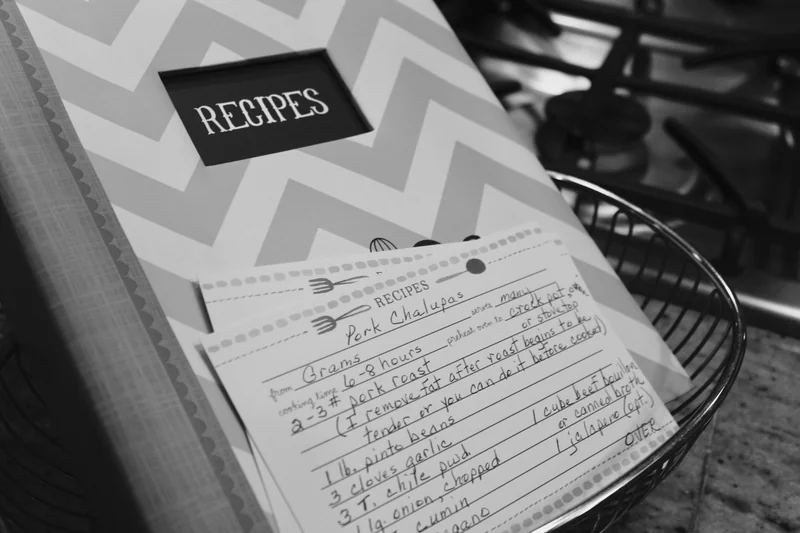 RECIPES
RECIPES
Pork Chalupas
serves many
from Grams
preheat oven to crock pot
or stove top
cooking time 6-8 hours
2-3# pork roast
(I remove fat after roast begins to be
tender or you can do it before cooked)
1 lb. pinto beans
3 cloves garlic 1 cube beef bouillon
3 T. chile pwd or canned broth
1 lg. onion, chopped 1 jalapeno (opt.)
cumin OVER